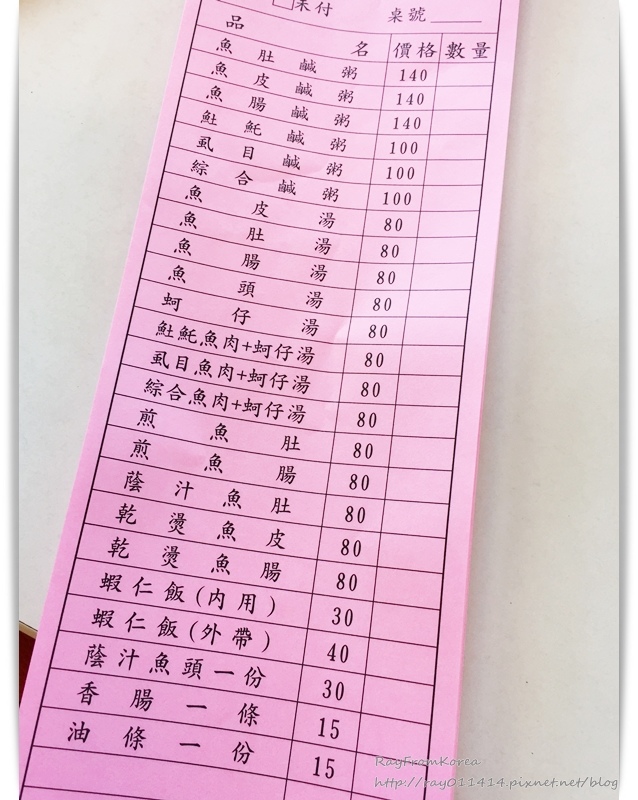 □未付 桌號______
品名 價格 數量
魚肚鹹粥 140
魚皮鹹粥 140
魚腸鹹粥 140
𩵚魠鹹粥 100
虱目鹹粥 100
綜合鹹粥 100
魚皮湯 80
魚肚湯 80
魚腸湯 80
魚頭湯 80
蚵仔湯 80
𩵚魠魚肉+蚵仔湯 80
虱目魚肉+蚵仔湯 80
綜合魚肉+蚵仔湯 80
煎魚肚 80
煎魚腸 80
蔭汁魚肚 80
乾燙魚皮 80
乾燙魚腸 80
蝦仁飯(內用) 30
蝦仁飯(外帶) 40
蔭汁魚頭一份 30
香腸一條 15
油條一份 15
RayFromKorea
http://ray011414.pixnet.net/blog